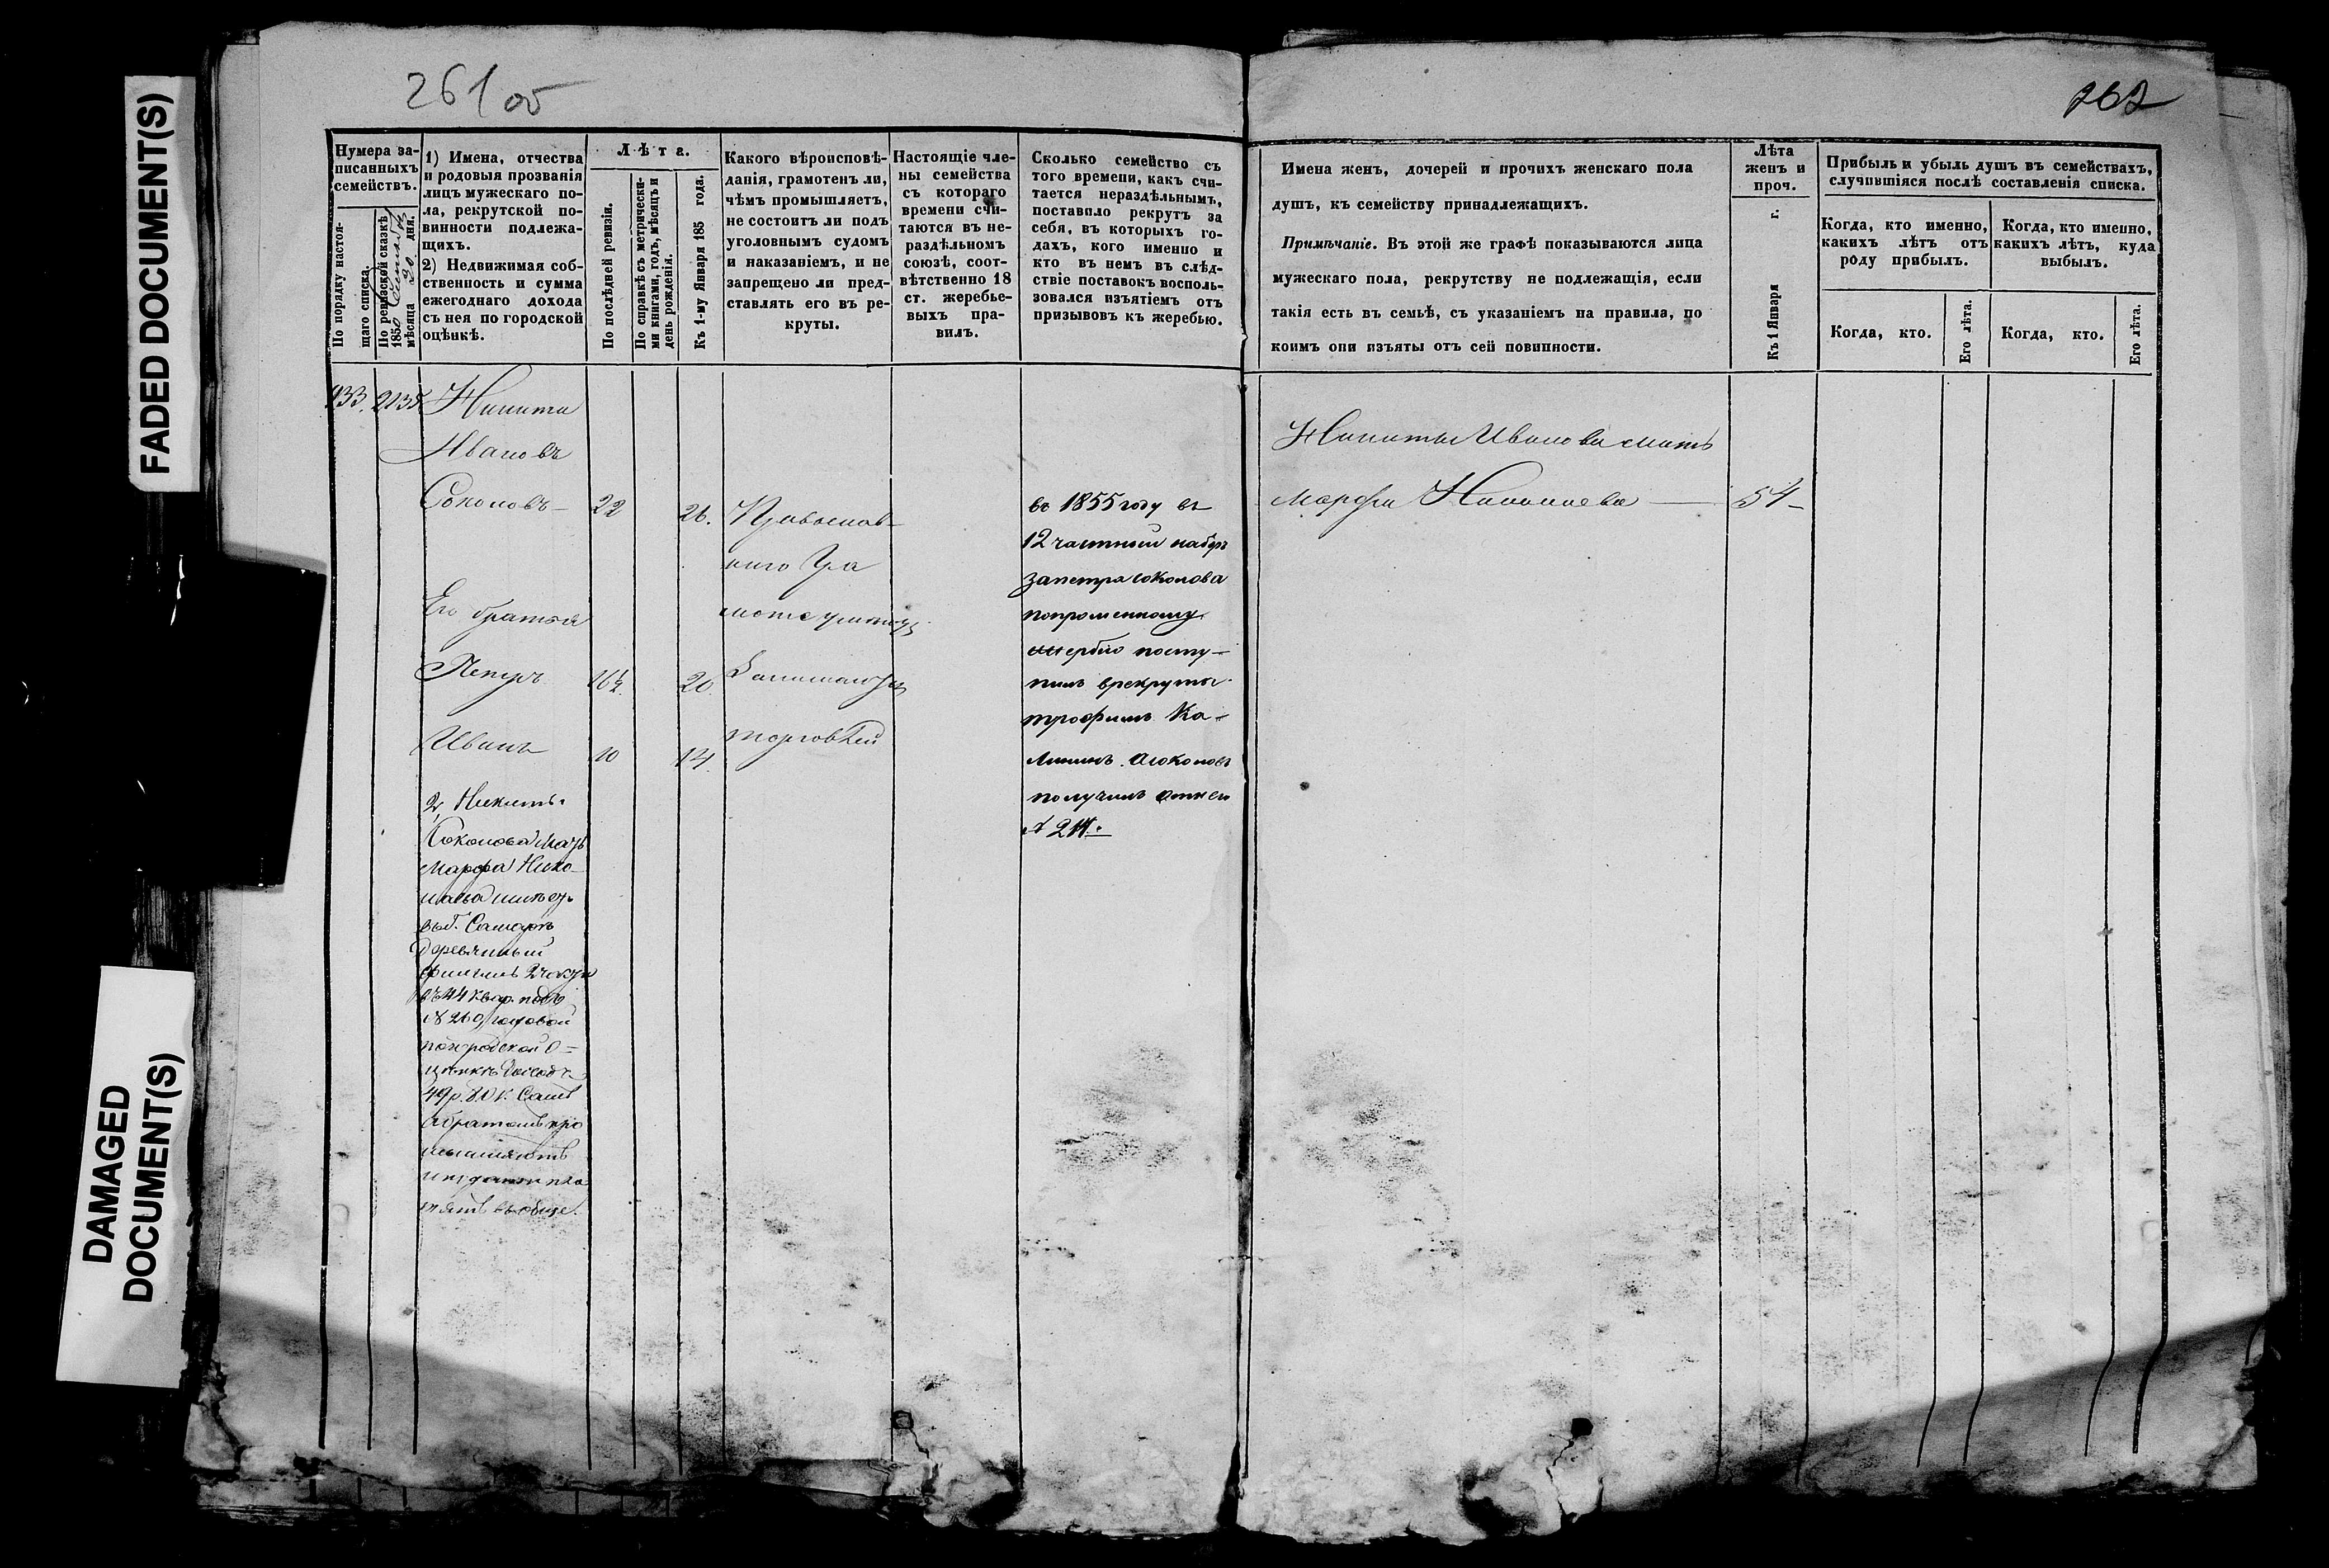 FADED DOCUMENT(S)
DAMAGED
DOCUMENT(S)
261 об
Нумера за-
писанныхъ
семействъ.
По порядку настоя-
щаго списка.
По ревизской сказкѣ
1850
мѣсяца 20 дня.
1) Имена, отчества
и родовыя прозванія
лицъ мужескаго по-
ла, рекрутской по-
винности подлежа-
щихъ.
2) Недвижимая соб-
ственность и сумма
ежегоднаго дохода
съ нея по городской
оцѣнкѣ.
Лѣта.
По послѣдней ревизіи.
По справкѣ съ метрически-
ми книгами, годъ, мѣсяцъ и
день рожденія.
Къ 1-му Января 185 года.
Какого вѣроисповѣ-
данія, грамотенъ ли,
чѣмъ промышляетъ,
не состоитъ ли подъ
уголовнымъ судомъ
и наказаніемъ, и не
запрещено ли пред-
ставлять его въ ре-
круты.
Настоящіе чле-
ны семейства
съ котораго
времени счи-
таются въ не-
раздѣльномъ
союзѣ, соот-
вѣтственно 18
ст. жеребье-
выхъ пра-
вилъ.
Сколько семейство съ
того времени, какъ счи-
тается нераздѣльнымъ,
поставило рекрутъ за
себя, въ которыхъ го-
дахъ, кого именно и
кто въ немъ въ слѣд-
ствіе поставокъ восполь-
зовался изъятіемъ отъ
призывовъ къ жеребью.
933. 2135 Никита
Ивановъ
Соколовъ 22 26. Православ-
наго Гра
мотѣ
Его братья
Петръ 16½ 20. Занимаются
торговлей
Иванъ 10 14.
2, Никиты
Соколова Мать
Марфа Нико-
лаева имѣетъ
въ г. Самарѣ
деревянный
флигель 2 части
въ 44 квар. подъ
№ 260,
по городской о-
цѣнкѣ доходъ
49 р. 80 к. Самъ
братомъ про
мышляютъ
и подати пла
тятъ вообще.
въ 1855 году въ
12 частный наборъ
за петра соколова
жеребью посту-
пилъ врекруты
трофимъ Ка-
Соколовъ
получилъ
№ 211.
262
Имена женъ, дочерей и прочихъ женскаго пола
душъ, къ семейству принадлежащихъ.
Примѣчаніе. Въ этой же графѣ показываются лица
мужескаго пола, рекрутству не подлежащія, если
такія есть въ семьѣ, съ указаніемъ на правила, по
коимъ они изъяты отъ сей повинности.
Лѣта
женъ и
проч.
Къ 1 Января г.
Прибыль и убыль душъ въ семействахъ,
случившіяся послѣ составленія списка.
Когда, кто именно,
какихъ лѣтъ отъ
роду прибылъ.
Когда, кто именно,
какихъ лѣтъ, куда
выбылъ.
Когда, кто.
Его лѣта.
Когда, кто.
Его лѣта.
Никиты Иванова мать
Марфа Николаева 54